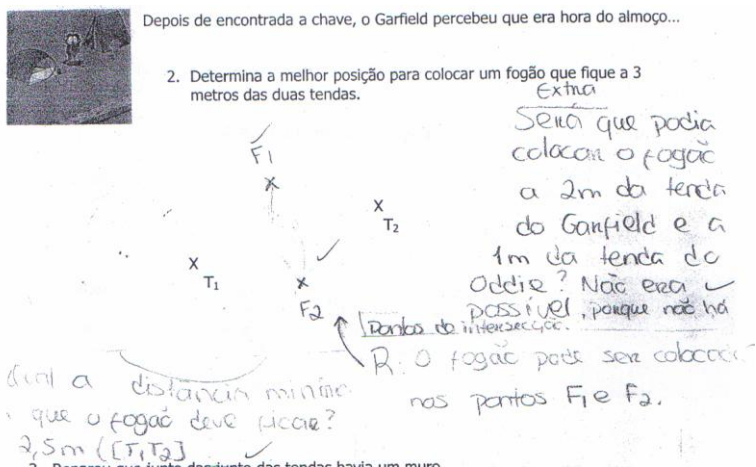 Depois de encontrada a chave, o Garfield percebeu que era hora do almoço...
2. Determina a melhor posição para colocar um fogão que fique a 3
metros das duas tendas.
Extra
Será que podia
colocar o fogão
a 2m da tenda
do Garfield e a
1m da tenda do
Oddie? Não era
possível, porque não há
Pontos de intersecção.
F1
X
X
T2
X
T1
X
F2
R: O fogão pode ser colocado
nos pontos F1 e F2.
a distância minima
que o fogão deve ficar?
2,5m ([T1T2]
3. Reparou que junto das tendas havia um muro